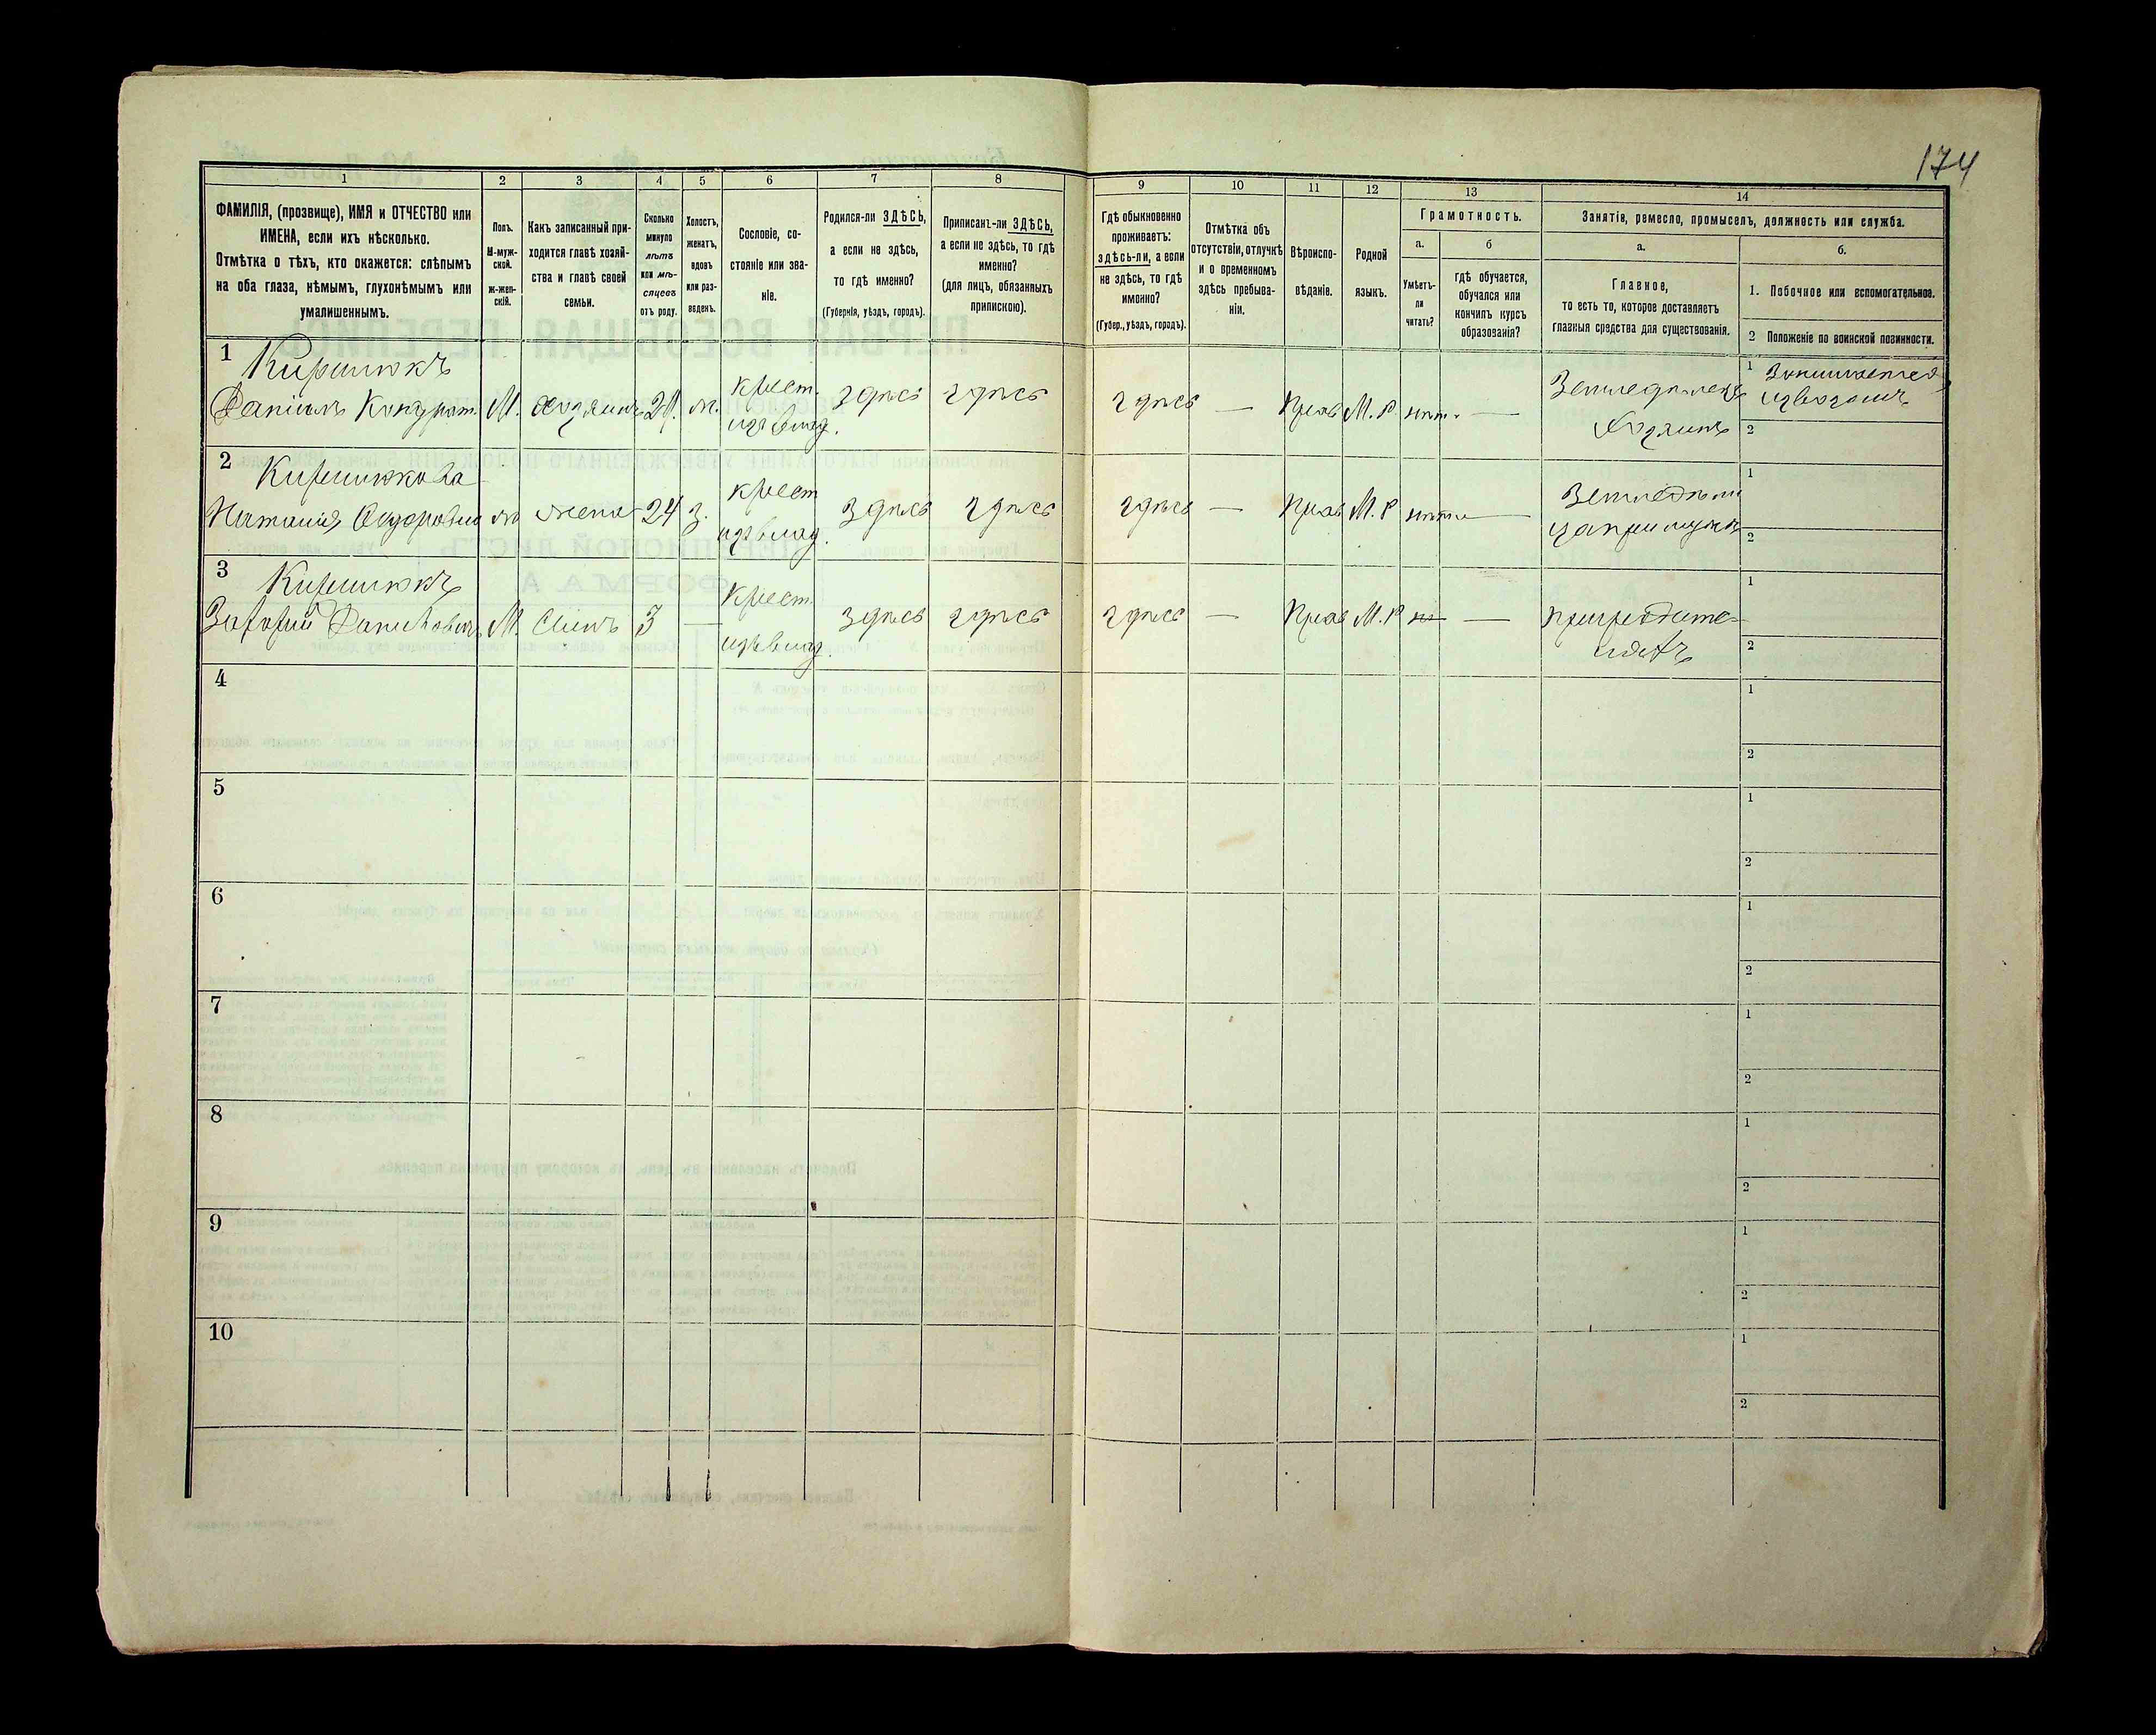 174
1 2 3 4 5 6 7 8 9 10 11 12 13 14
ФАМИЛІЯ, (прозвище), ИМЯ и ОТЧЕСТВО или
ИМЕНА, если ихъ нѣсколько.
Отмѣтка о тѣхъ, кто окажется: слѣпымъ
на оба глаза, нѣмымъ, глухонѣмымъ или
умалишеннымъ.
Полъ.
М-муж-
ской.
ж-жен-
скій.
Какъ записанный при-
ходится главѣ хозяй-
ства и главѣ своей
семьи.
Сколько
минуло
лѣтъ
или мѣ-
сяцевъ
отъ роду.
Холостъ,
женатъ,
вдовъ
или раз-
веденъ.
Сословіе, со-
стояніе или зва-
ніе.
Родился-ли ЗДѢСЬ,
а если не здѣсь,
то гдѣ именно?
(Губернія, уѣздъ, городъ).
Приписанъ-ли ЗДѢСЬ,
а если не здѣсь, то гдѣ
именно?
(для лицъ, обязанныхъ
припискою).
Гдѣ обыкновенно
проживаетъ:
здѣсь-ли, а если
не здѣсь, то гдѣ
именно?
(Губер., уѣздъ, городъ).
Отмѣтка объ
отсутствіи, отлучкѣ
и о временномъ
здѣсь пребыва-
ніи.
Вѣроиспо-
вѣданіе.
Родной
языкъ.
Грамотность.
а.
Умѣетъ-
ли
читать?
б
гдѣ обучается,
обучался или
кончилъ курсъ
образованія?
Занятіе, ремесло, промыселъ, должность или служба.
а.
Главное,
то есть то, которое доставляетъ
главныя средства для существованія.
б.
1. Побочное или вспомогательное.
2 Положеніе по воинской повинности.
1 Кирилюкъ
Даніилъ Кондрат. М. хозяинъ ж. крест. изъ влад. здѣсь здѣсь здѣсь — Прав М. Р нѣтъ — Земледѣлецъ
хозяинъ
1 Занимается
извозомъ
2
2 Кирилюкова
Наталия ж жена 24 з. крест изъ влад. здѣсь здѣсь здѣсь — Прав М. Р нѣтъ —
1
2
3 Кирилюкъ
М. Сынъ 3 — крест. изъ влад. здѣсь здѣсь здѣсь — Прав М. Р —
1
2
4
1
2
5
1
2
6
1
2
7
1
2
8
1
2
9
1
2
10
1
2